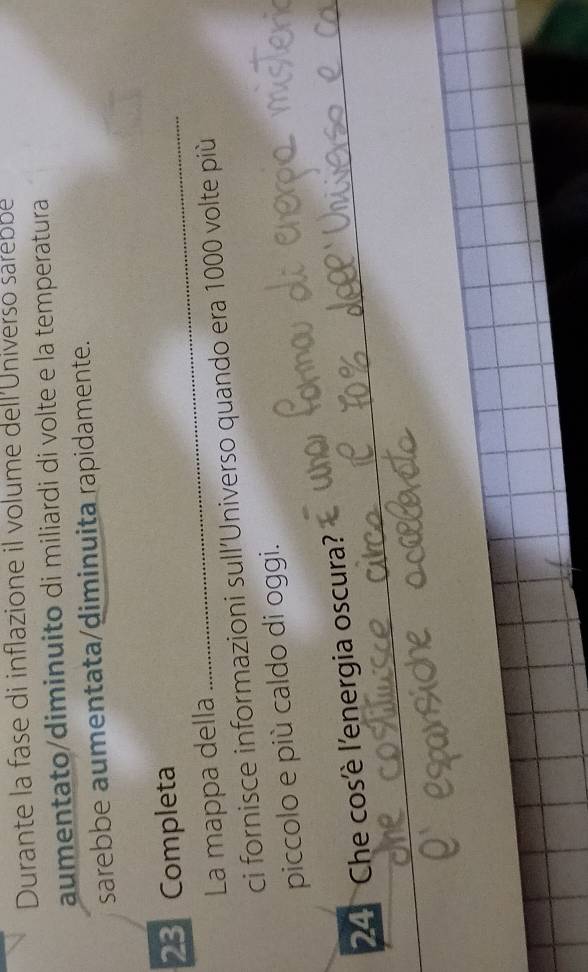 Durante la fase di inflazione il volume dell'Universo sarebbe
aumentato/diminuito di miliardi di volte e la temperatura
sarebbe aumentata/diminuita rapidamente.
23 Completa
La mappa della
ci fornisce informazioni sull'Universo quando era 1000 volte più
piccolo e più caldo di oggi.
24 Che cos'è l'energia oscura? È una forma di energia
che costituisce circa il 70% dell'Universo e
l'espansione accelerata